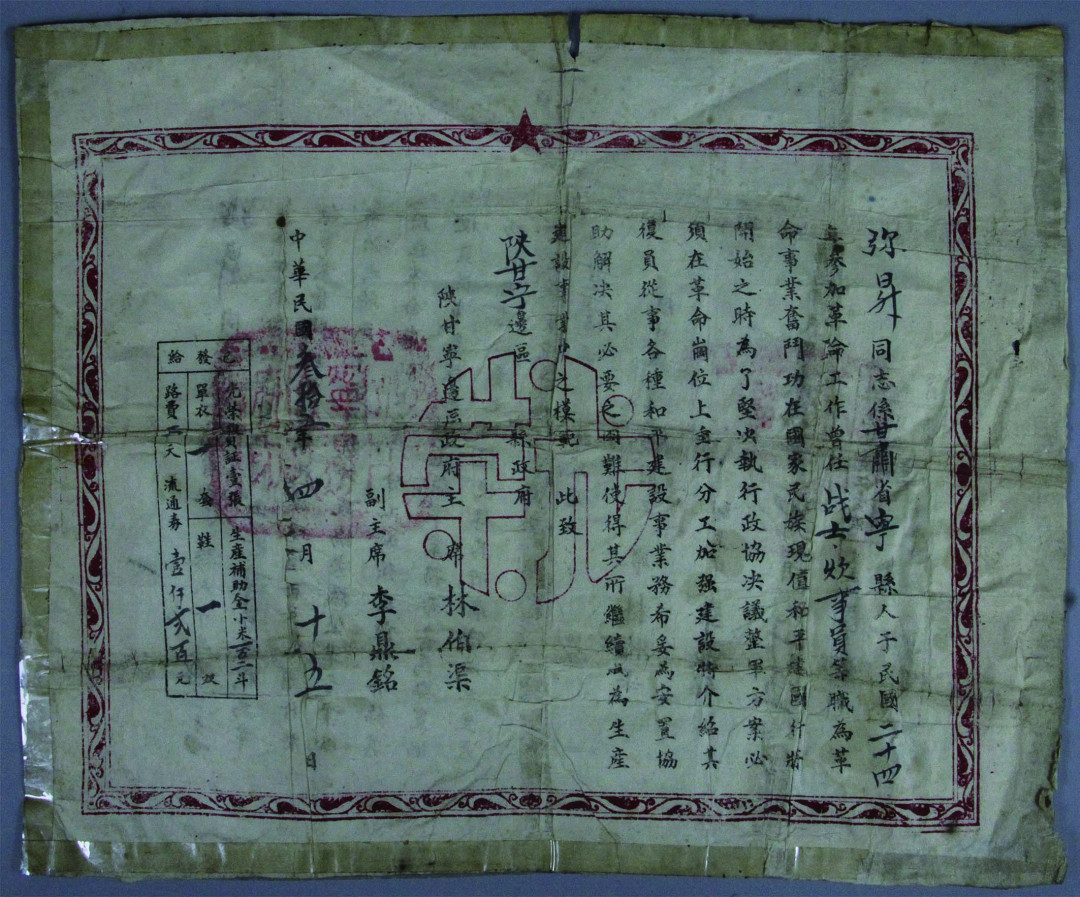 弥昇同志係甘肅省寧縣人于民國二十四
年參加革命工作曾任战士炊事員等職為革
命事業奮鬥功在國家民族現值和平建國行將
開始之時為了堅决執行政協决議整軍方案必
須在革命崗位上重行分工加强建設特介紹其
復員從事各種和平建設事業務希妥為安置協
助解决其必要之困難使得其所繼續成為生産
建設事業中之模範 此致
陕甘宁邊區 縣政府
陝甘寧邊區政府主席林伯渠
副主席李鼎銘
中華民國叁拾五年四月十五日
光榮復員証壹張 生産補助金小米一石二斗
發單衣一套鞋一双
給路費三天流通券壹仟弍百元